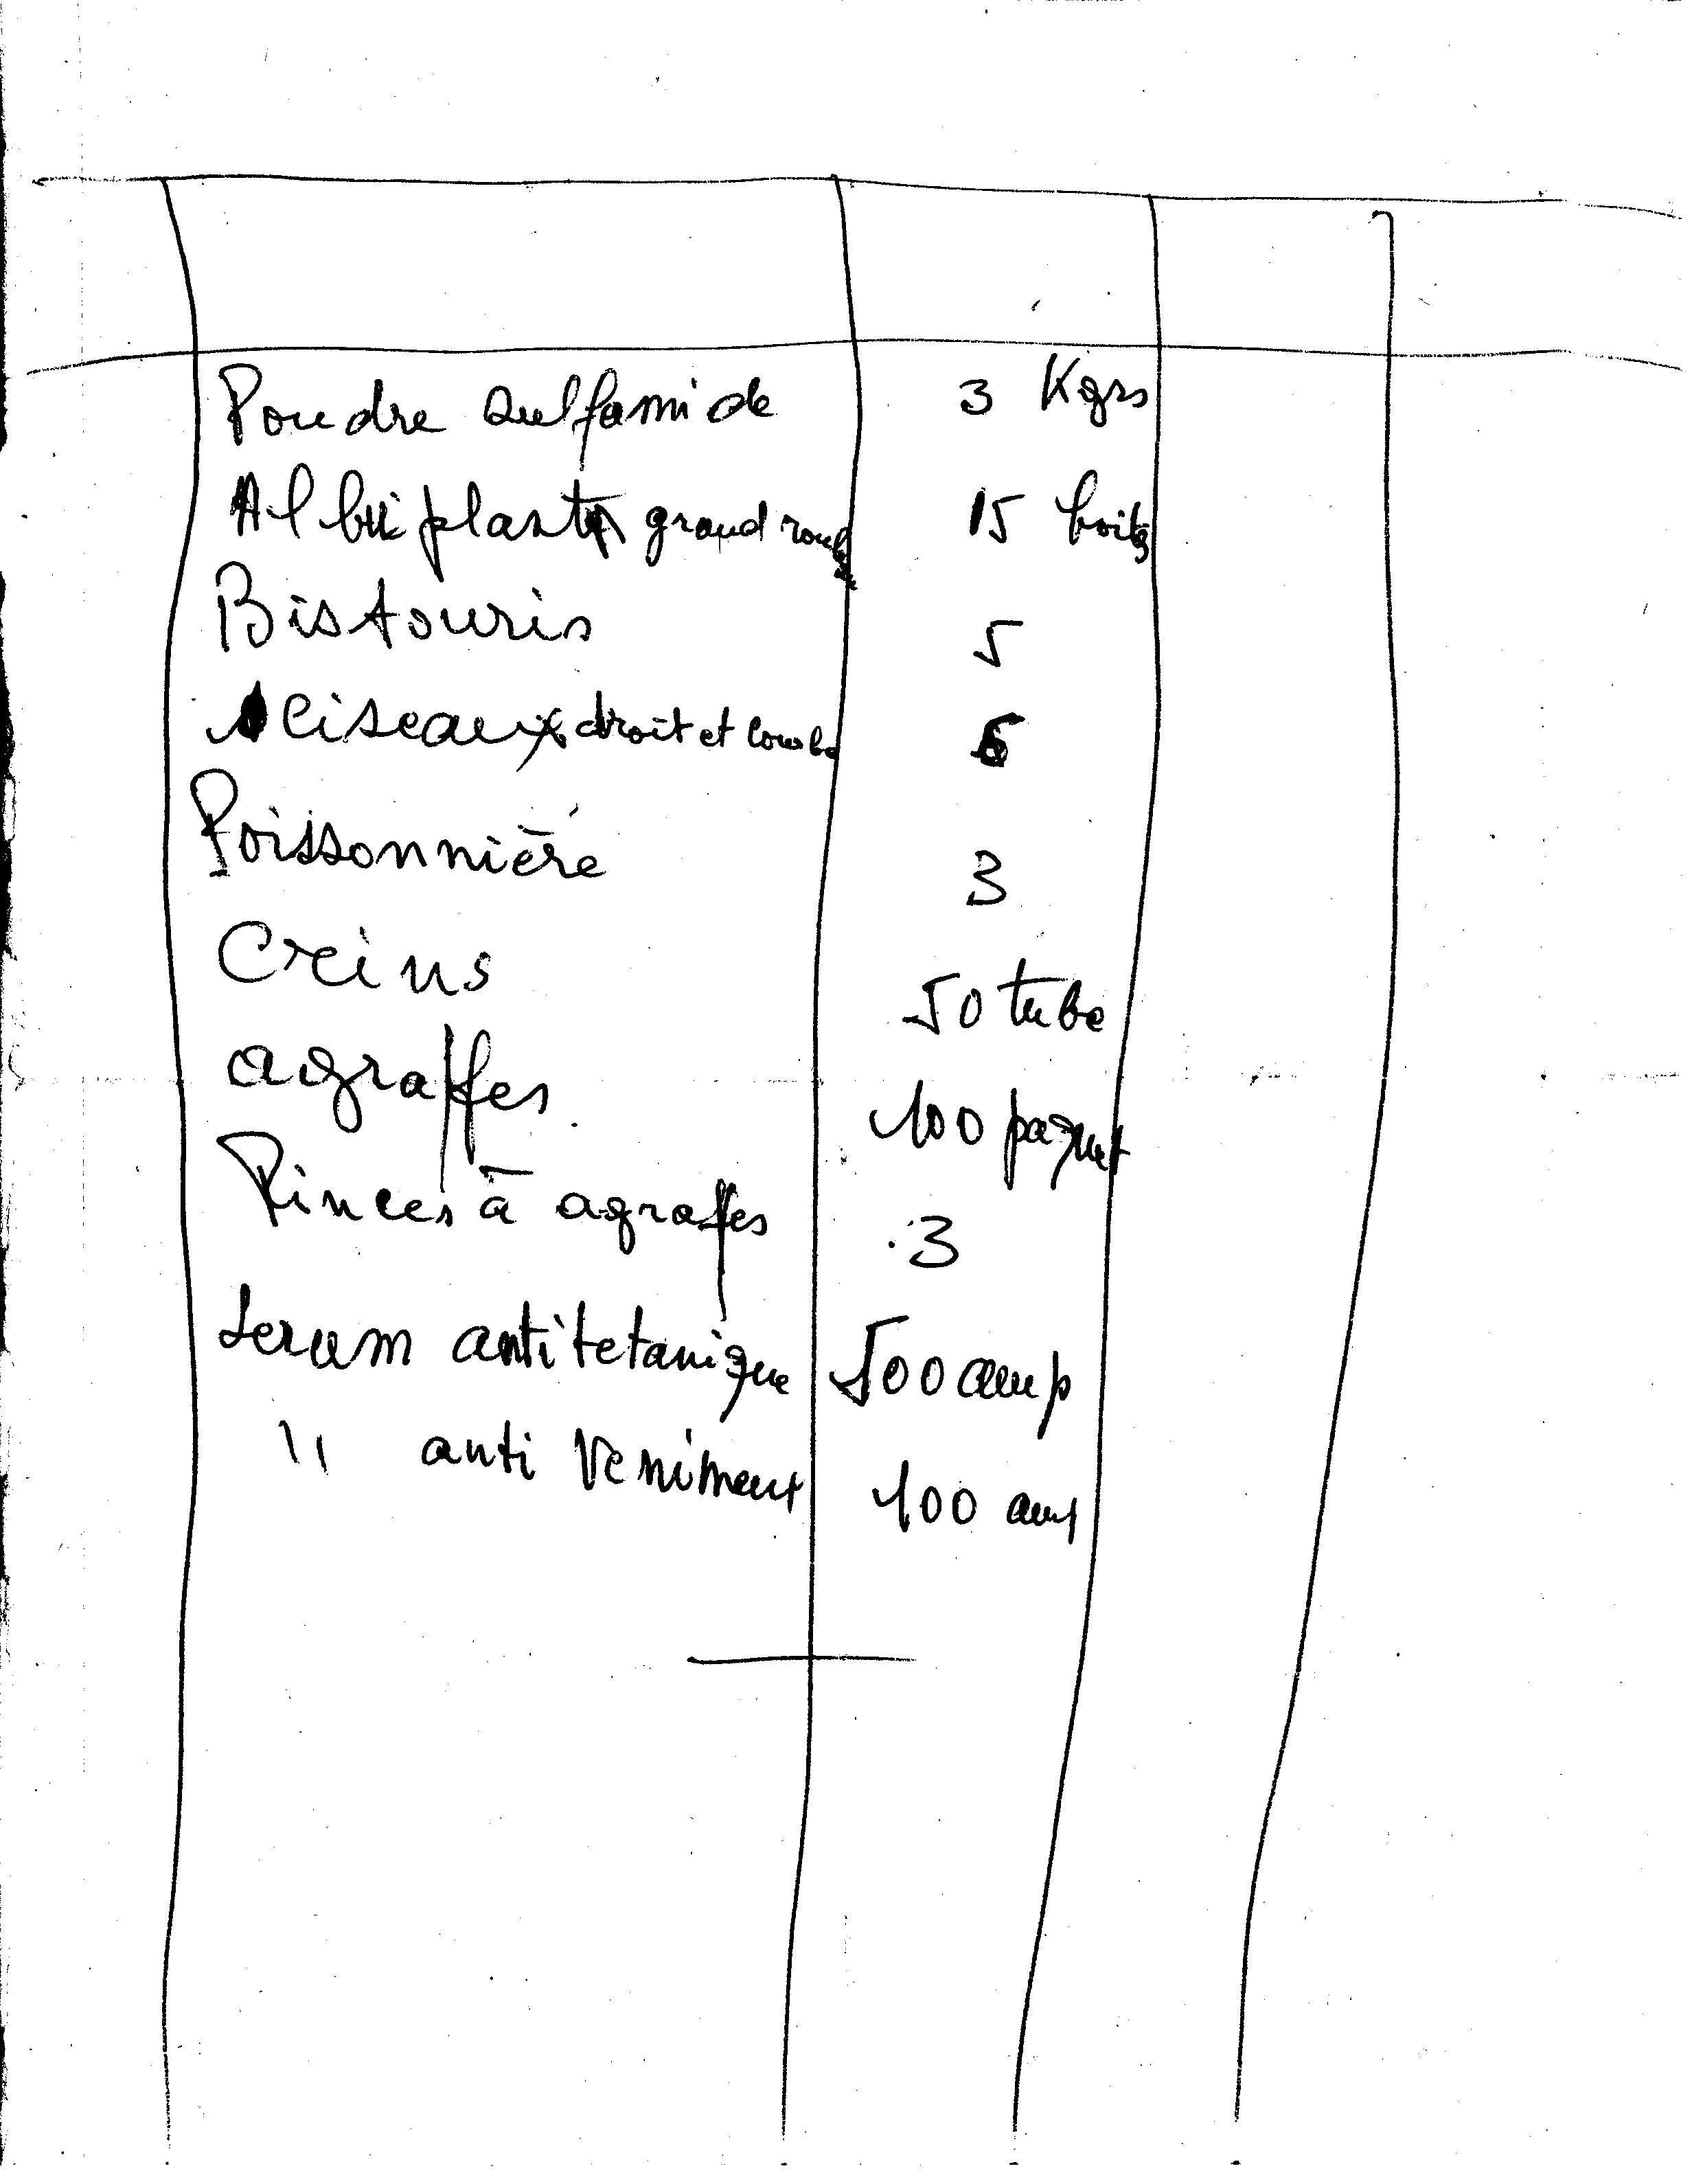 Poudre sulfamide 3 Kgrs
Albuplast grand rouleau 15 boites
Bistouris 5
Ciseaux droit et courbe 6
Poissonnière 3
Creins 50 tube
agraffes 100 paquet
Pinces à agraffes 3
Serum antitetanique 500 amp
" anti Venimeux 100 amp